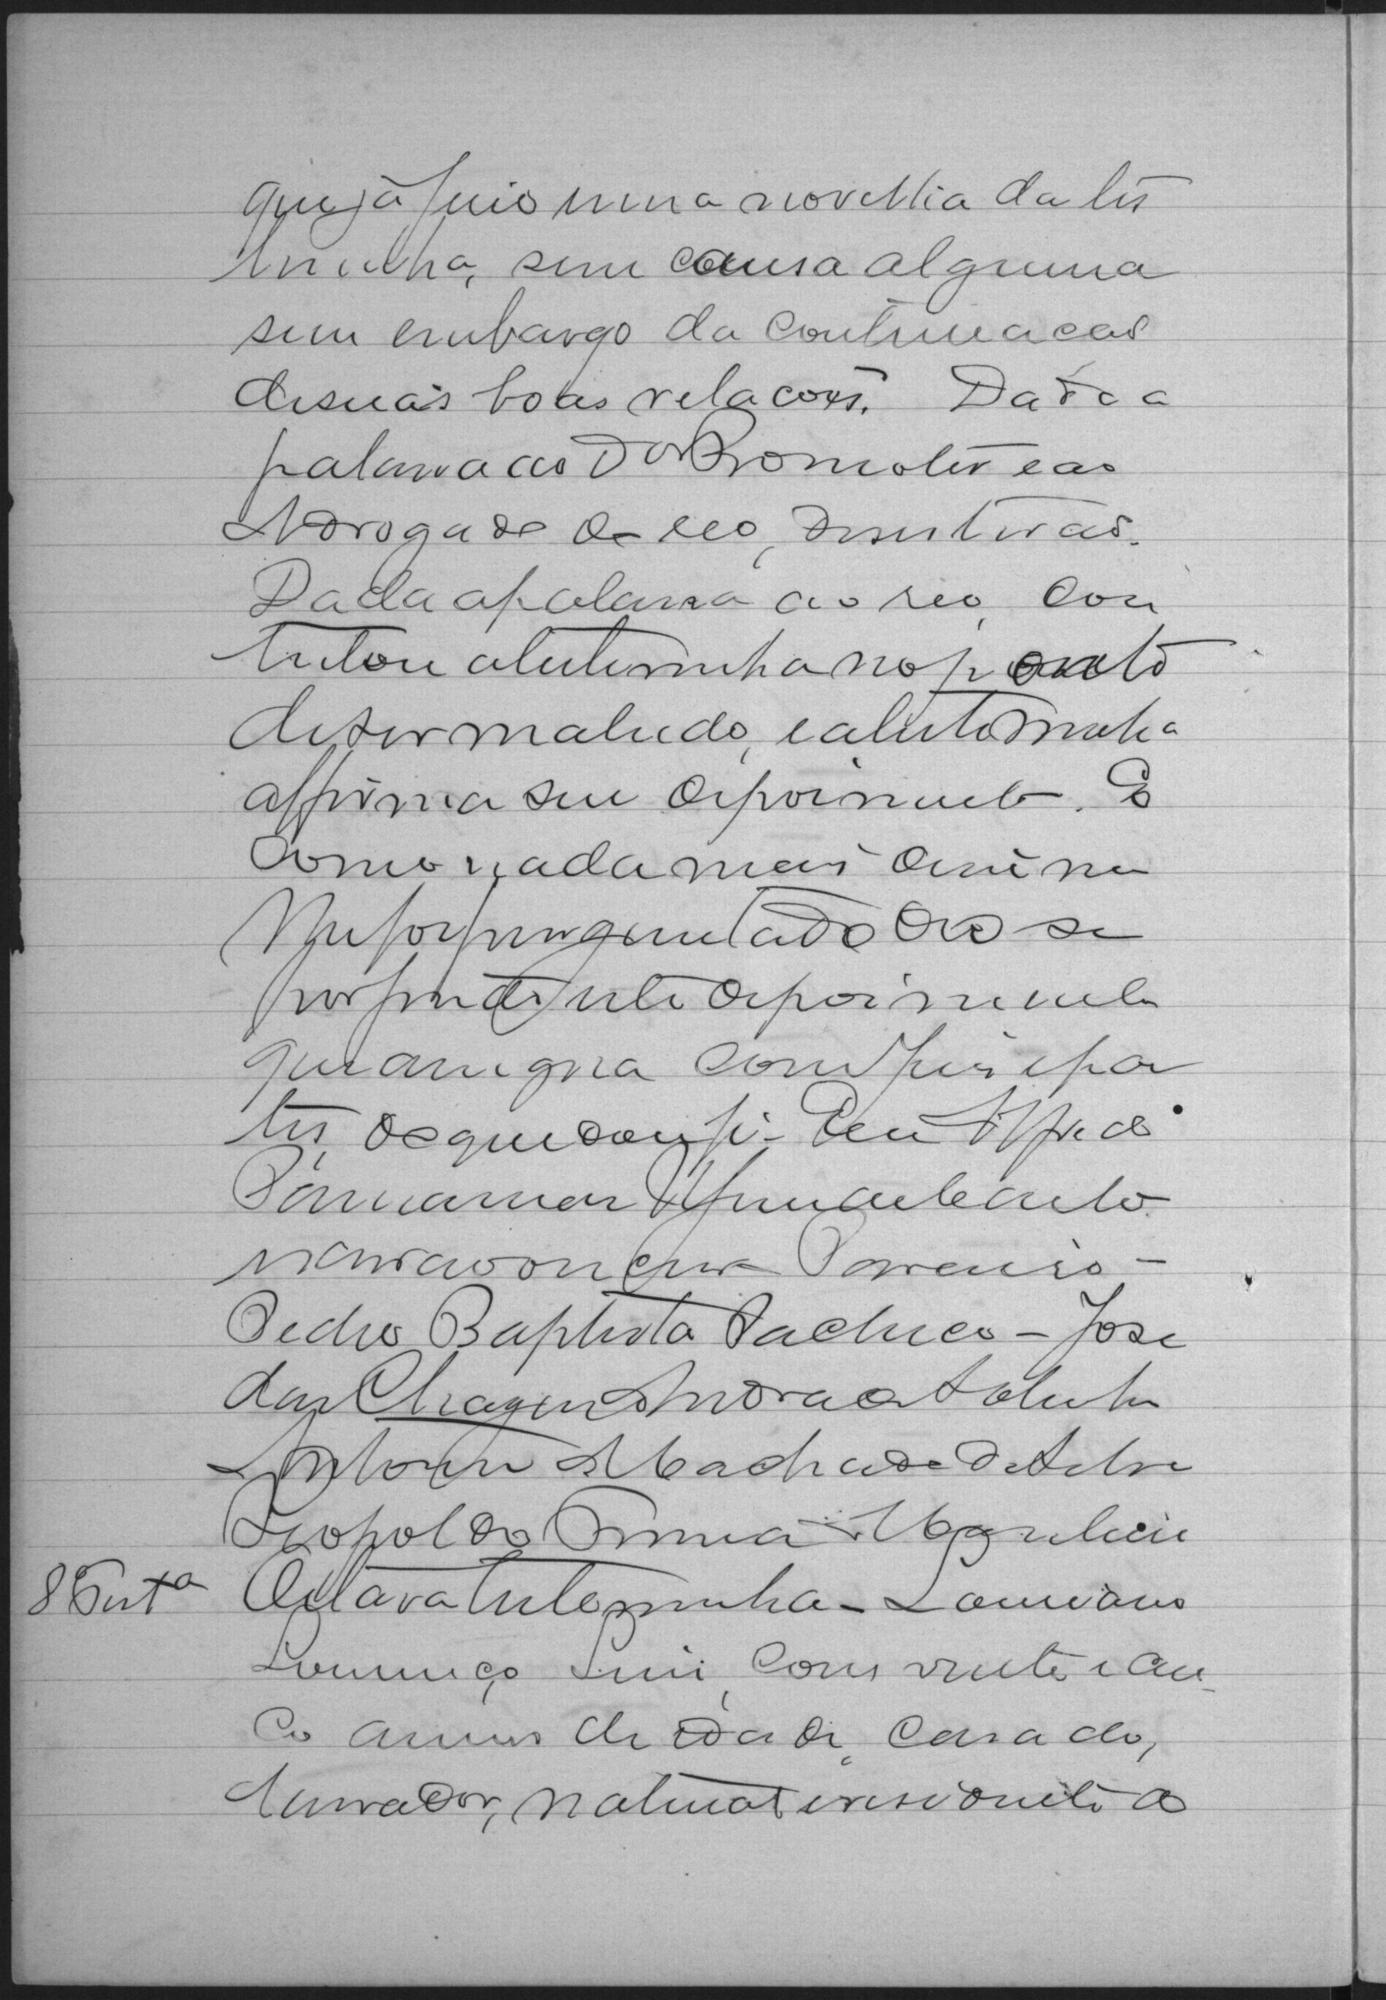 que já feriu uma novilha da tes
timunha, sem causa alguma
sem embargo da continuacão
de suas boas relacoes. Dada a
palavra ao Dor Promotor e ao
Advogado do reo, desistirão.
Dada a palavra ao reo, con
testou a testemunha no ponto
de ser malvado, e a testemunha
affirma seu depoimento. E
como nada mais disse nem
lhe foi perguntado deo se
por findo este depoimento
que assigna com o Juiz e par
tes, do que dou fé. Eu Alfredo
escrevi
Pedro Baptista Pacheco - Jose
das Chagas Andrade
Antonio Machado da Silva
Leopoldo Magalhães
8ª Testa Oitava testemunha - Laureano
Lourenço Luis, com vinte e cin
co annos de idade, casado,
lavrador, natural e residente do